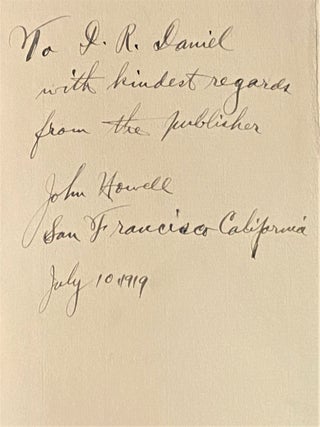 To D. R. Daniel
with kindest regards
from the publisher
John Howell
San Francisco California
July 10 1919